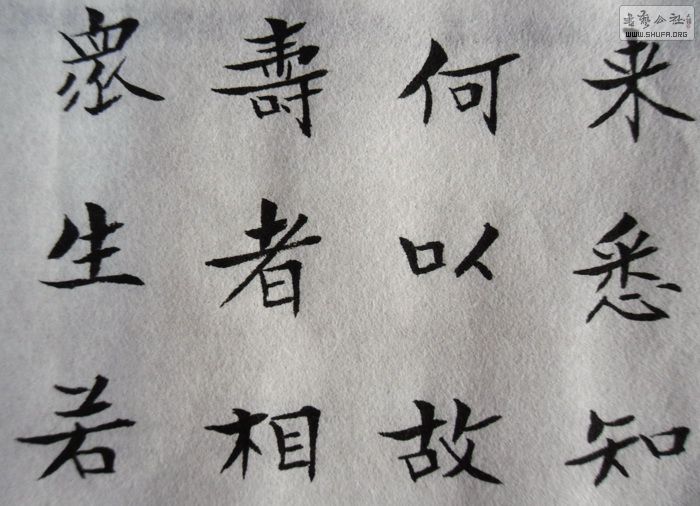 来悉知
何以故
壽者相
眾生若
WWW.SHUFA.ORG